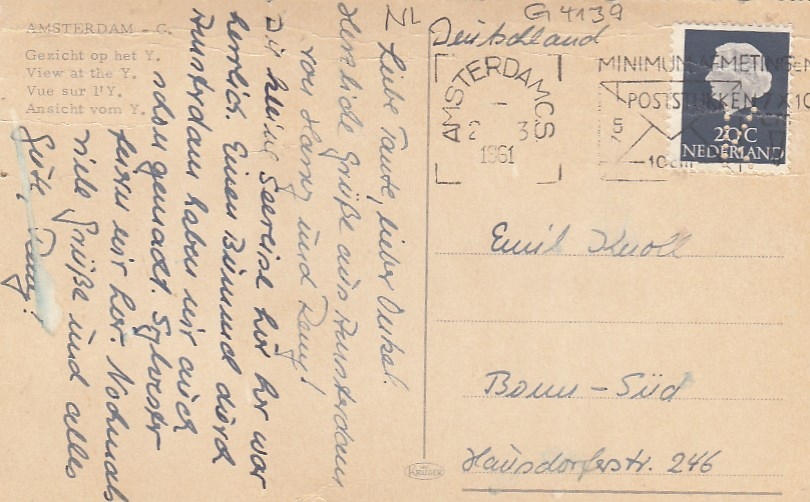 AMSTERDAM - C.
Gezicht op het Y.
View at the Y.
Vue sur l'Y.
Ansicht vom Y.
NL
Liebe Tante, lieber Onkel.
Herzliche Grüße aus Amsterdam
von Harry und
Die kleine Seereise hier her war
herrlich. Einen Bummel durch
Amsterdam haben wir auch
schon gemacht. Sylvester
feiern wir hier. Nochmals
viele Grüße und alles
Gute,
G 4139
Deutschland
AMSTERDAM CS
2 - 3
1961
MINIMUM AFMETINGEN
POSTSTUKKEN 7 X 10
10cm
20 C
NEDERLAND
Emil Knoll
Bonn - Süd
Hausdorferstr. 246
KRUGER